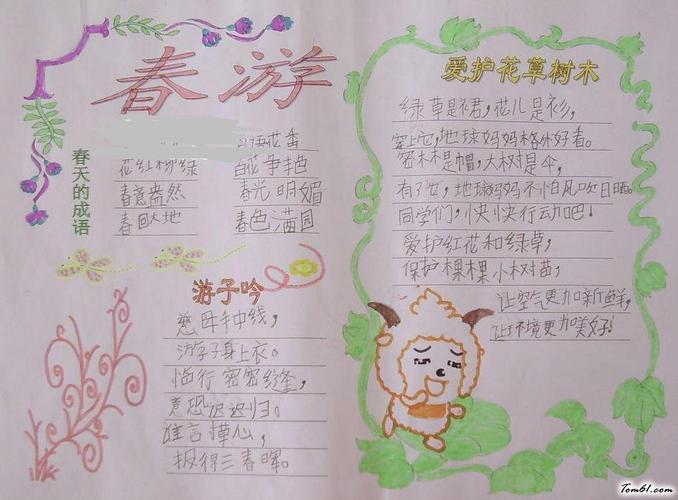 春游
春天的成语
语花香
花红柳绿 百花争艳
春意盎然 春光明媚
春回大地 春色满园
游子吟
慈母手中线，
游子身上衣。
临行密密缝，
意恐迟迟归。
谁言心，
报得三春晖。
爱护花草树木
绿草是裙，花儿是衫，
穿上它，地球妈妈格外好看。
密林是帽，大树是伞，
有了它，地球妈妈不怕风吹日晒。
同学们，快快行动吧！
爱护红花和绿草，
保护棵棵小树苗，
让空气更加新鲜，
让环境更加美好！
Tom61.com